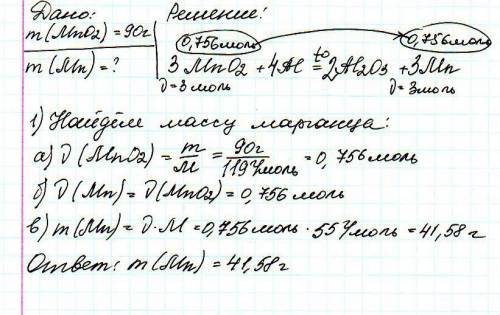 Дано:
m(MnO2)=90г
m(Mn)=?
Решение:
0,756моль 0,756моль
3MnO2+4Al t°= 2Al2O3+3Mn
ν=3моль ν=3моль
1) Найдём массу марганца:
а) ν(MnO2)= m/M = 90г/119г/моль = 0,756моль
б) ν(Mn)=ν(MnO2)=0,756моль
в) m(Mn)=ν·M=0,756моль·55г/моль=41,58г
Ответ: m(Mn)=41,58г